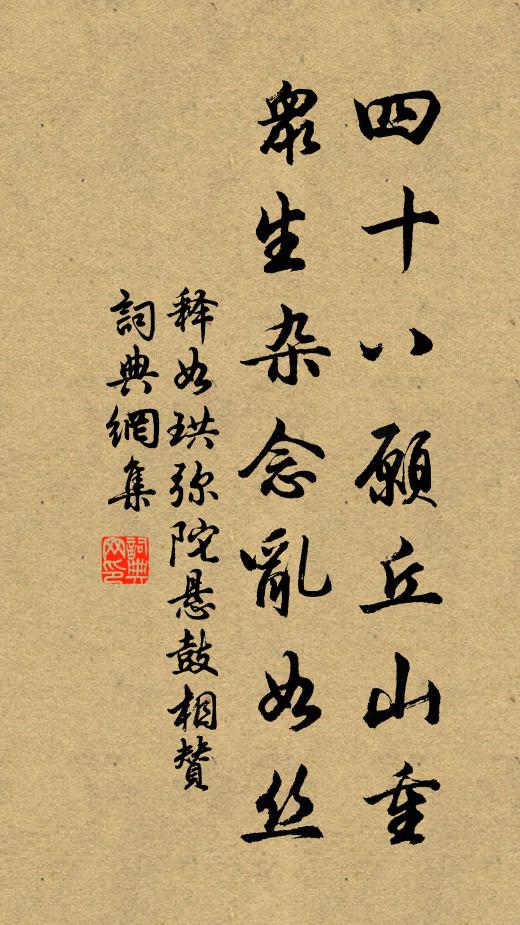 四十八願丘山重
眾生杂念亂如丝
释如珙弥陀悬鼓相贊
詞典網集
詞典網印